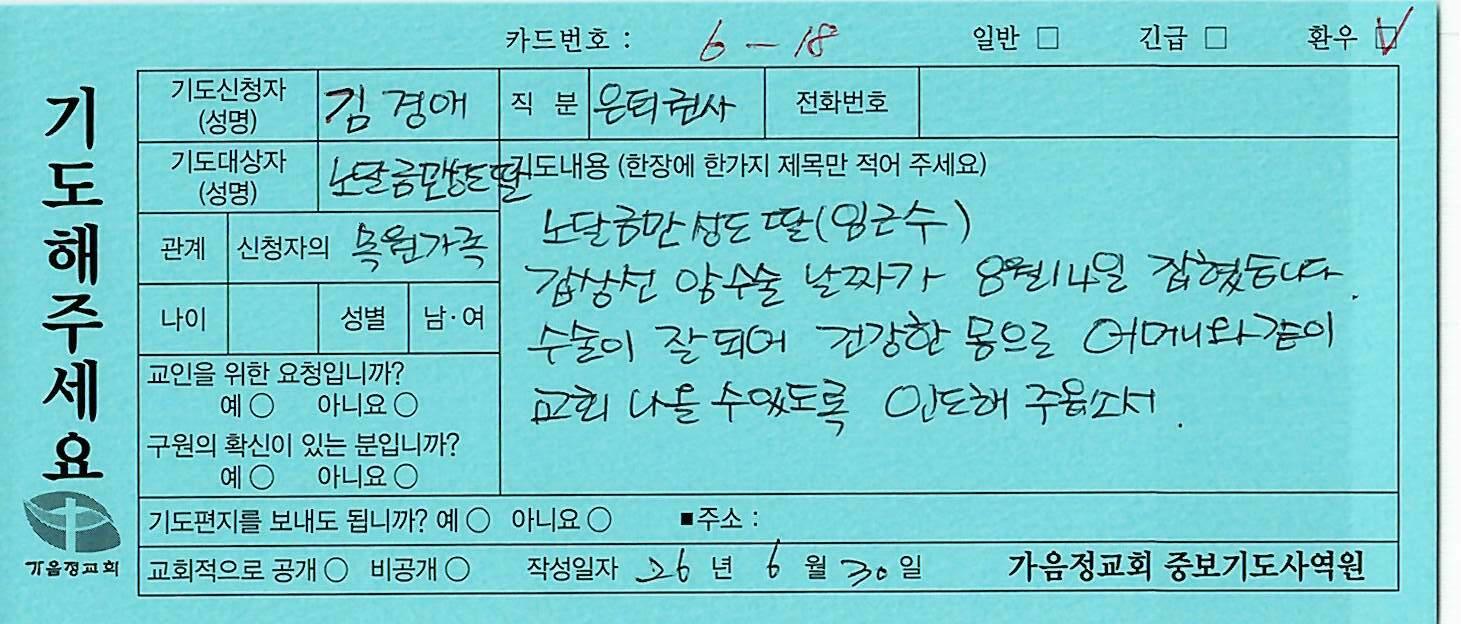 기도해주세요
가음정교회
카드번호 : 6 - 18 일반 □ 긴급 □ 환우 ☑
기도신청자 (성명) 김경애 직 분 은퇴권사 전화번호
기도대상자 (성명) 노달금만성도딸
관계 신청자의 목원가족
나이 성별 남·여
교인을 위한 요청입니까?
예 ○ 아니요 ○
구원의 확신이 있는 분입니까?
예 ○ 아니요 ○
기도내용 (한장에 한가지 제목만 적어 주세요)
노달금만성도 딸(임근수)
갑상선 암수술 날짜가 8월14일 잡혔습니다.
수술이 잘 되어 건강한 몸으로 어머니와같이
교회 나올 수있도록 인도해 주옵소서.
기도편지를 보내도 됩니까? 예 ○ 아니요 ○ ■주소 :
교회적으로 공개 ○ 비공개 ○ 작성일자 26 년 6 월 30 일 가음정교회 중보기도사역원